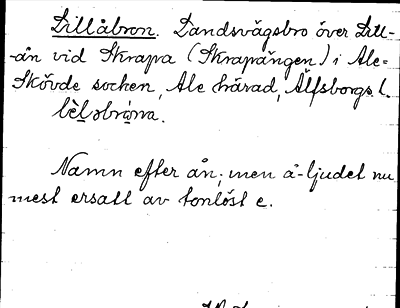 Lillåbron. Landsvägsbro över Lill-
-ån vid Skrapa (Skrapängen) i Ale-
Skövde socken, Ale härad, Älfsborgs l.
Namn efter ån; men å-ljudet nu
mest ersatt av tonlöst e.